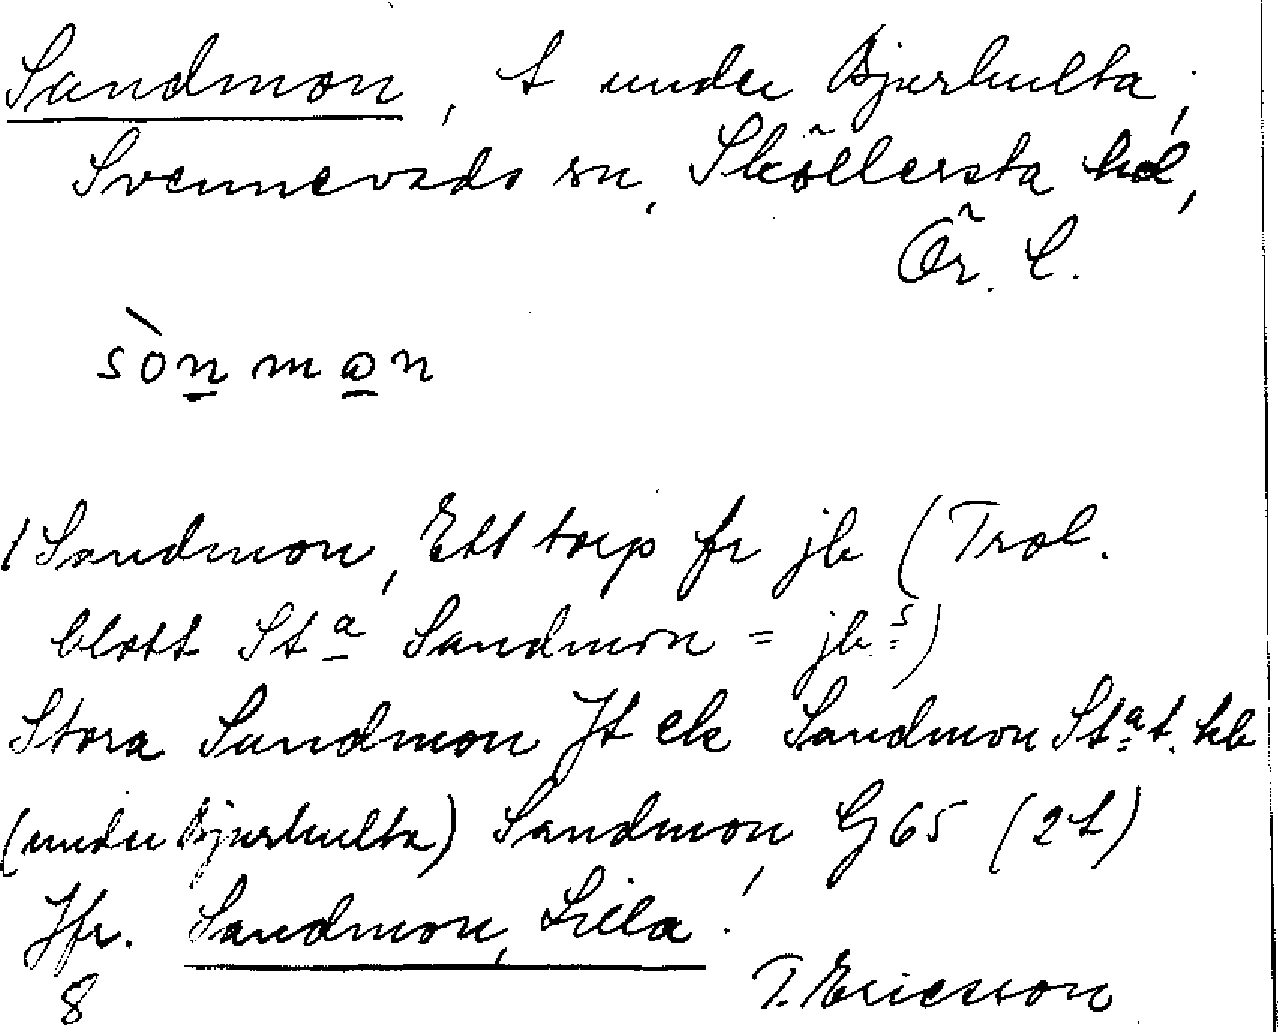 Sandmon, t under Bjurhulta,
Svennevads sn, Sköllersta hd,
Ör. l.
sònmɷn
1 Sandmon, Ett torp fr jb (Trol.
blott Sta Sandmon = jbs)
Stora Sandmon Jt ek Sandmon Sta t. kb
(under Bjurhulta) Sandmon, G65 (2t)
Jfr. Sandmon, Lilla.
8 T. Ericsson